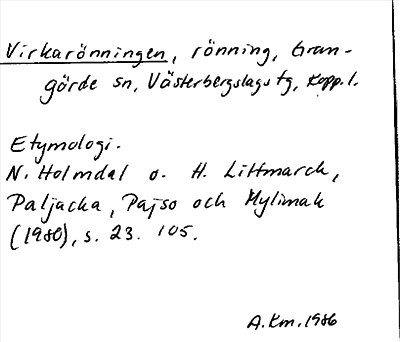 Virkarönningen, rönning, Gran-
gärde sn, Västerbergslags tg, Kopp.l.
Etymologi.
N. Holmdal o. H. Littmarck,
Paljacka, Pajso och Mylimak
(1980), s. 23. 105.
A.Km. 1986